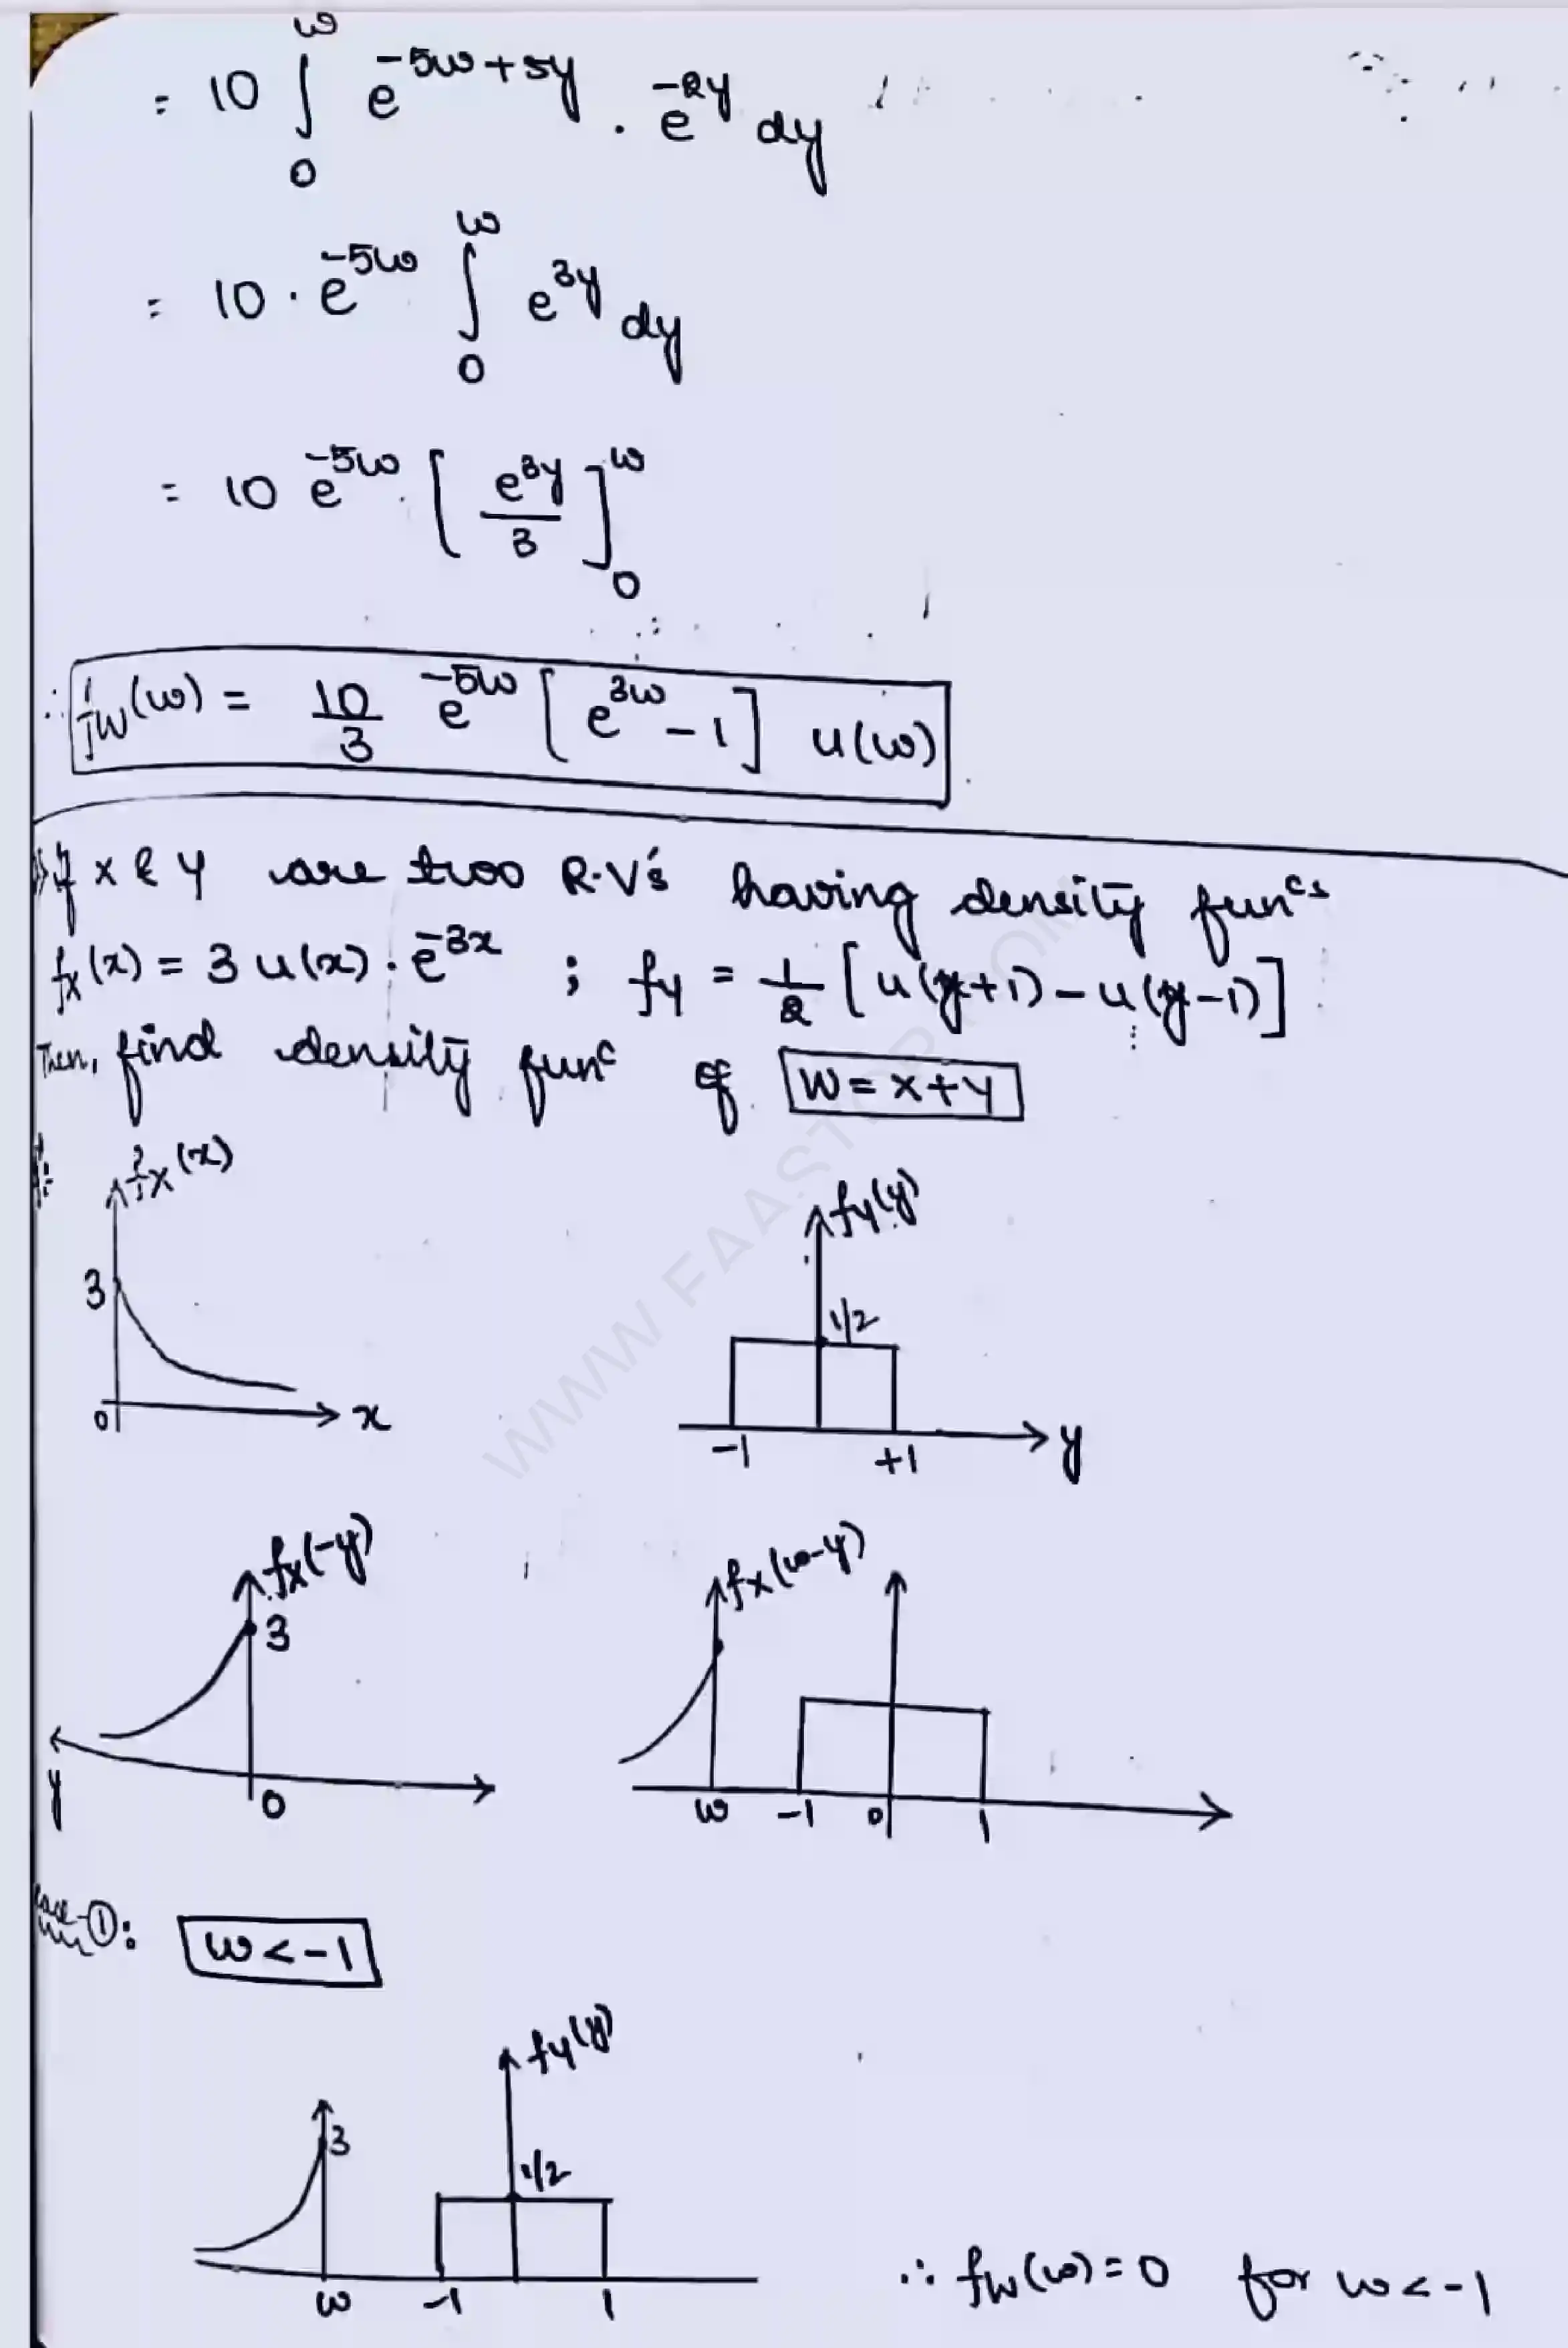 ω
= 10 ∫ e^{-5ω+5y} . e^{-2y} dy
0
ω
= 10 . e^{-5ω} ∫ e^{3y} dy
0
= 10 e^{-5ω} . [ e^{3y} / 3 ]_0^ω
∴ f_W(ω) = 10/3 e^{-5ω} [ e^{3ω} - 1 ] u(ω)
If x & y are two R.V's having density func^s
f_X(x) = 3 u(x) . e^{-3x} ; f_y = 1/2 [ u(y+1) - u(y-1) ]
Then, find density func^c of W = x+y
f_X(x)
3
0
x
f_Y(y)
1/2
-1
+1
y
f_X(-y)
3
y
0
f_X(ω-y)
ω -1 0 1
Case-①: ω < -1
f_Y(y)
3
1/2
ω -1 1
∴ f_W(ω) = 0 for ω < -1